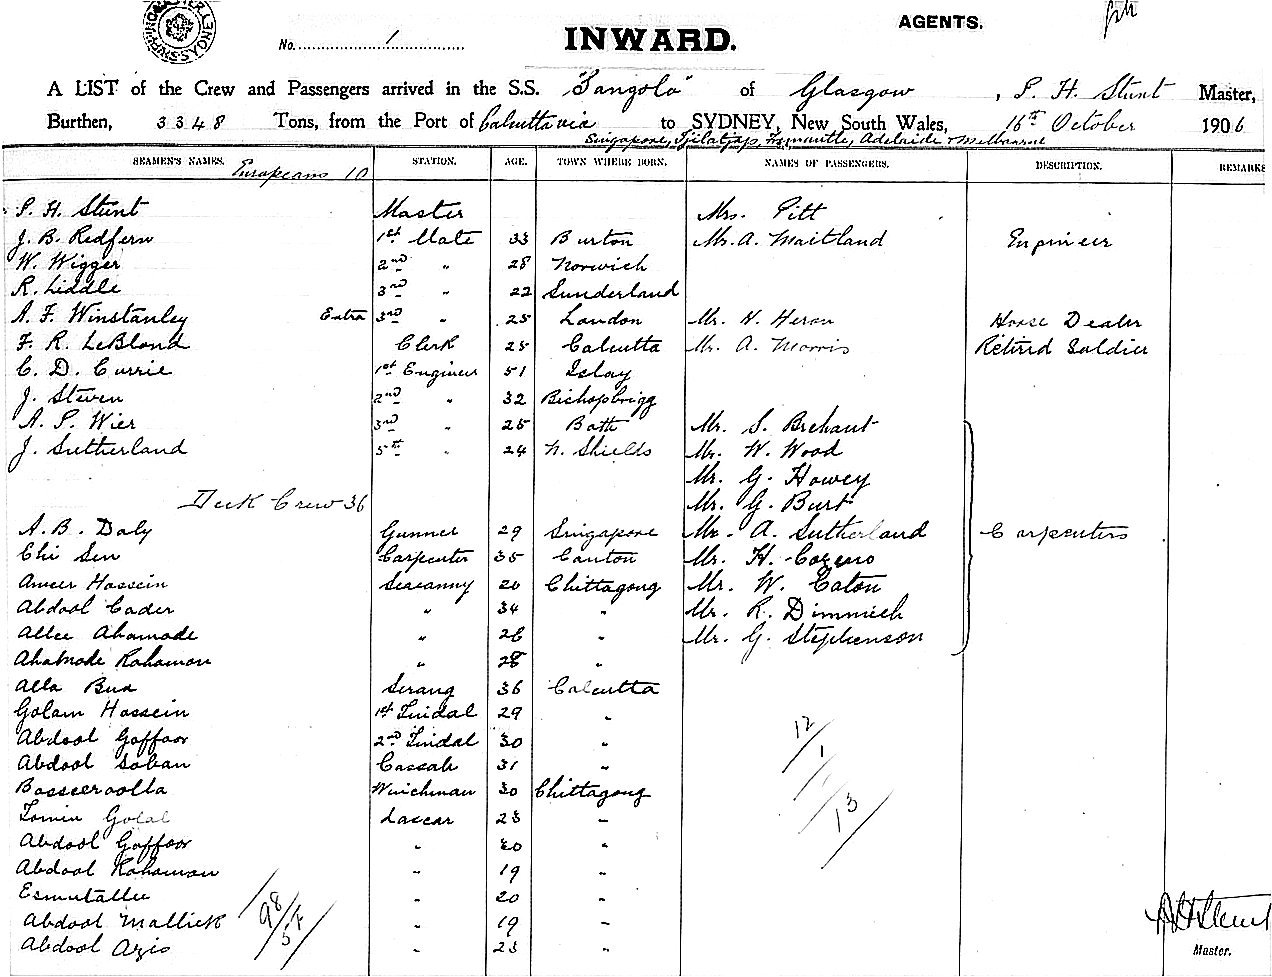 AGENTS.
No. 1
INWARD.
A LIST of the Crew and Passengers arrived in the S.S. "Sangola" of Glasgow, S. H. Stunt Master,
Burthen, 3348 Tons, from the Port of Calcutta via to SYDNEY, New South Wales, 16th October 1906
Singapore, Tjilatjap, Fremantle, Adelaide & Melbourne
SEAMEN'S NAMES. STATION. AGE. TOWN WHERE BORN. NAMES OF PASSENGERS. DESCRIPTION. REMARKS
Europeans 10
S. H. Stunt Master Mrs. Pitt
J. B. Redfern 1st Mate 33 Burton Mr. A. Maitland Engineer
W. Wigger 2nd " 28 Norwich
R. Liddle 3rd " 22 Sunderland
A. F. Winstanley Extra 3rd " 25 London Mr. N. Heron Horse Dealer
F. R. LeBlond Clerk 25 Calcutta Mr. A. Morris Retired Soldier
C. D. Currie 1st Engineer 51 Islay
J. Steven 2nd " 32 Bishopbrigg
A. P. Wier 3rd " 25 Bath Mr. S. Brehaut
J. Sutherland 5th " 24 N. Shields Mr. W. Wood
Mr. G. Howey
Deck Crew 36 Mr. G. Burt
A. B. Daly Gunner 29 Singapore Mr. A. Sutherland Carpenters
Chi Sen Carpenter 35 Canton Mr. H. Cozens
Ameer Hossein Seacunny 20 Chittagong Mr. W. Eaton
Abdool Cader " 34 " Mr. R. Dimmich
Allee Ahamode " 26 " Mr. G. Stephenson
Ahamode Rahaman " 28 "
Alla Bux Serang 36 Calcutta
Golam Hossein 1st Tindal 29 "
Abdool Goffoor 2nd Tindal 30 "
Abdool Soban Cassab 31 "
Basseeroolla Winchman 30 Chittagong
Golal Lascar 23 "
Abdool Goffoor " 20 "
Abdool Rahaman " 19 "
Esmutallee " 20 "
Abdool Mallick " 19 "
Abdool Azis " 23 "
12/1
/13
98/
Master.